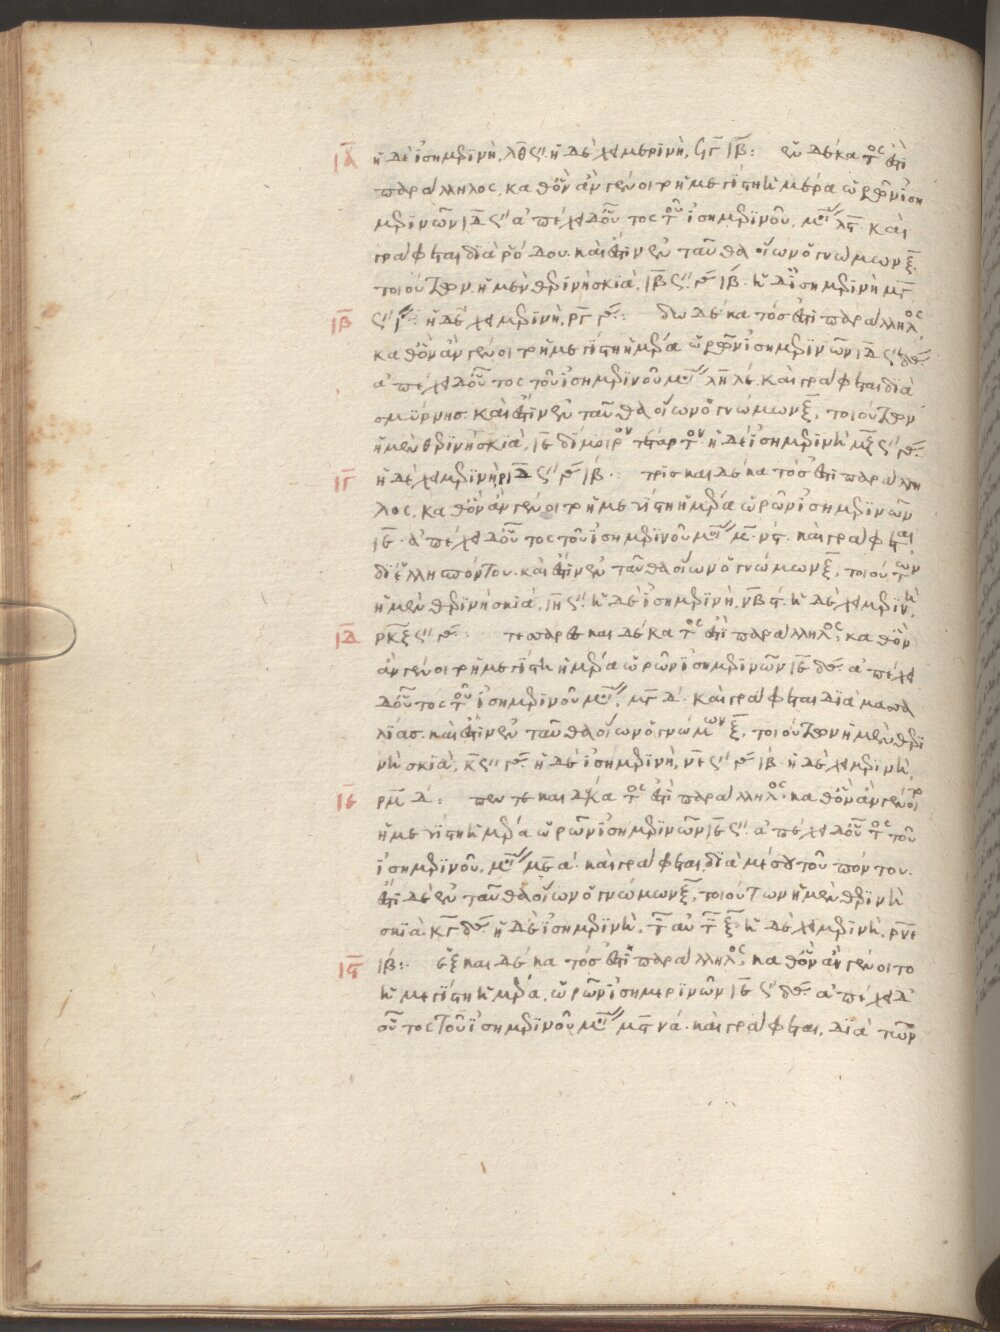 ΙΑ ἡ δὲ ἰσημερινὴ, λθ ϛ″· ἡ δὲ χειμερινὴ, ϟγ ιβ: ἑνδέκατός ἐστι
παράλληλος, καθ' ὃν ἂν γένοιτο ἡ μεγίστη ἡμέρα ὡρῶν ἰση
μερινῶν ιδ ϛ″ ἀπέχει δ' οὗτος τοῦ ἰσημερινοῦ, μοί λϛ καὶ
γράφεται διὰ ῥόδου. καὶ ἔστιν ἐνταῦθα οἵων ὁ γνώμων ξ̄.
τοιούτων. ἡ μὲν θερινὴ σκιὰ, ιβ ϛ″ γ″ ιβ. ἡ δ' ἰσημερινὴ μγ
ΙΒ ϛ″ γ″: ἡ δὲ χειμερινὴ, ργ γ″: δωδέκατός ἐστι παράλληλος
καθ' ὃν ἂν γένοιτο ἡ μεγίστη ἡμέρα ὡρῶν ἰσημερινῶν ιδ ϛ″ δ″.
ἀπέχει δ' οὗτος τοῦ ἰσημερινοῦ μοί λη λε. καὶ γράφεται διὰ
σμύρνης. καὶ ἔστιν ἐνταῦθα οἵων ὁ γνώμων ξ̄, τοιούτων
ἡ μὲν θερινὴ σκιὰ, ιε δίμοιρον τέταρτον. ἡ δὲ ἰσημερινὴ μζ ϛ″ γ″
ΙΓ ἡ δὲ χειμερινὴ ριδ ϛ″ γ″ ιβ: τρισκαιδέκατός ἐστι παράλλη
λος, καθ' ὃν ἂν γένοιτο ἡ μεγίστη ἡμέρα ὡρῶν ἰσημερινῶν
ιε. ἀπέχει δ' οὗτος τοῦ ἰσημερινοῦ μοί μ. νϛ. καὶ γράφεται
δι' ἑλλησπόντου. καὶ ἔστιν ἐνταῦθα οἵων ὁ γνώμων ξ̄, τοιούτων
ἡ μὲν θερινὴ σκιὰ, ιη ϛ″. ἡ δὲ ἰσημερινὴ, νβ ϛ. ἡ δὲ χειμερινὴ
ΙΔ ρκζ ϛ″ γ″: τεσσαρεσκαιδέκατός ἐστι παράλληλος, καθ' ὃν
ἂν γένοιτο ἡ μεγίστη ἡμέρα ὡρῶν ἰσημερινῶν ιε δ″. ἀπέχει
δ' οὗτος τοῦ ἰσημερινοῦ μοί, μγ δ. καὶ γράφεται διὰ μασσα
λίας. καὶ ἔστιν ἐνταῦθα οἵων ὁ γνώμων ξ̄, τοιούτων ἡ μὲν θερι
νὴ σκιὰ, κ ϛ″ γ″ ἡ δὲ ἰσημερινὴ, νε ϛ″ γ″ ιβ. ἡ δὲ χειμερινὴ,
ΙΕ ρμ δ: πεντεκαιδέκατός ἐστι παράλληλος. καθ' ὃν ἂν γένοιτο
ἡ μεγίστη ἡμέρα ὡρῶν ἰσημερινῶν ιε ϛ″. ἀπέχει δ' οὗτος τοῦ
ἰσημερινοῦ, μοί με α. καὶ γράφεται, διὰ μέσου τοῦ πόντου.
ἔστι δὲ ἐνταῦθα οἵων ὁ γνώμων ξ̄, τοιούτων ἡ μὲν θερινὴ
σκιὰ. κγ δ″ ἡ δὲ ἰσημερινὴ, τ̄ αὐτ̄ ξ̄ ἡ δὲ χειμερινὴ. ρνε
Ιϛ ιβ: ἑξκαιδέκατός ἐστι παράλληλος, καθ' ὃν ἂν γένοιτο
ἡ μεγίστη ἡμέρα, ὡρῶν ἰσημερινῶν ιε ϛ″ δ″. ἀπέχει δ'
οὗτος τοῦ ἰσημερινοῦ μοί μϛ νά. καὶ γράφεται, διὰ τῶν